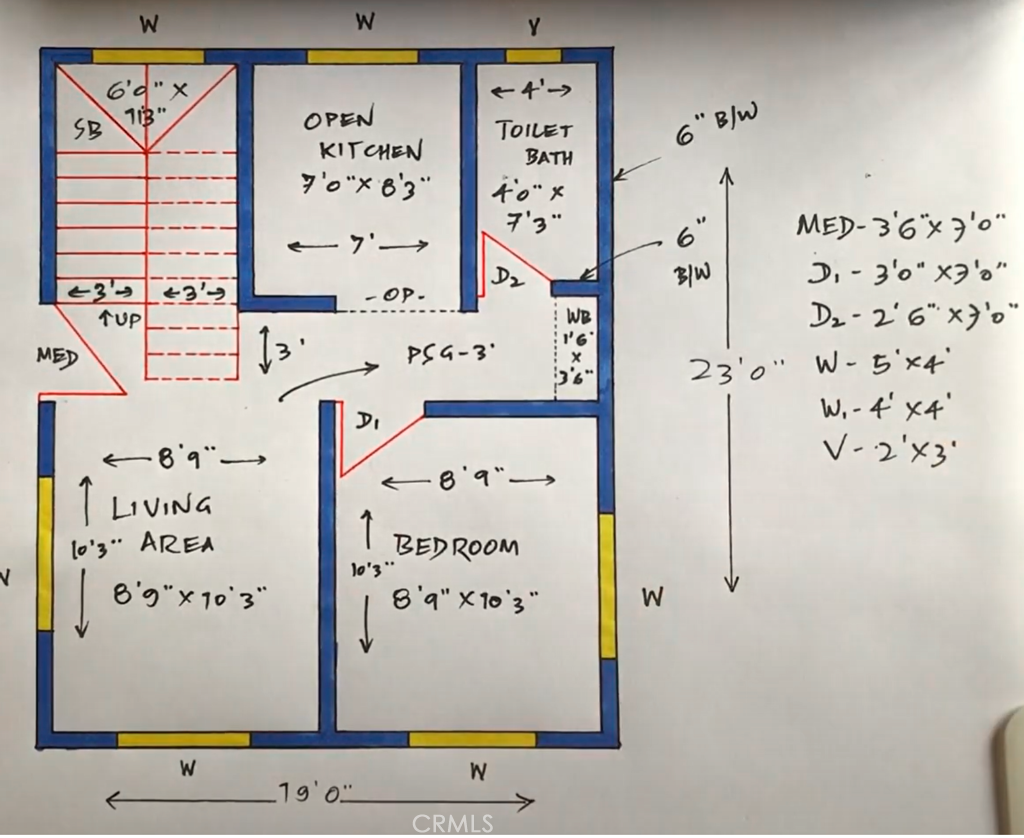 W
W
V
6'0" x
7'3"
SB
OPEN
KITCHEN
7'0" x 8'3"
7'
4'
TOILET
BATH
4'0" x
7'3"
D2
6" B/W
6"
B/W
3'
3'
↑UP
MED
3'
-OP-
PSG-3'
WB
1'6"
x
3'6"
D1
23'0"
MED- 3'6" x 7'0"
D1 - 3'0" x 7'0"
D2 - 2'6" x 7'0"
W - 5' x 4'
W1 - 4' x 4'
V - 2' x 3'
8'9"
LIVING
AREA
10'3"
8'9" x 10'3"
8'9"
BEDROOM
10'3"
8'9" x 10'3"
W
W
W
19'0"
CRMLS